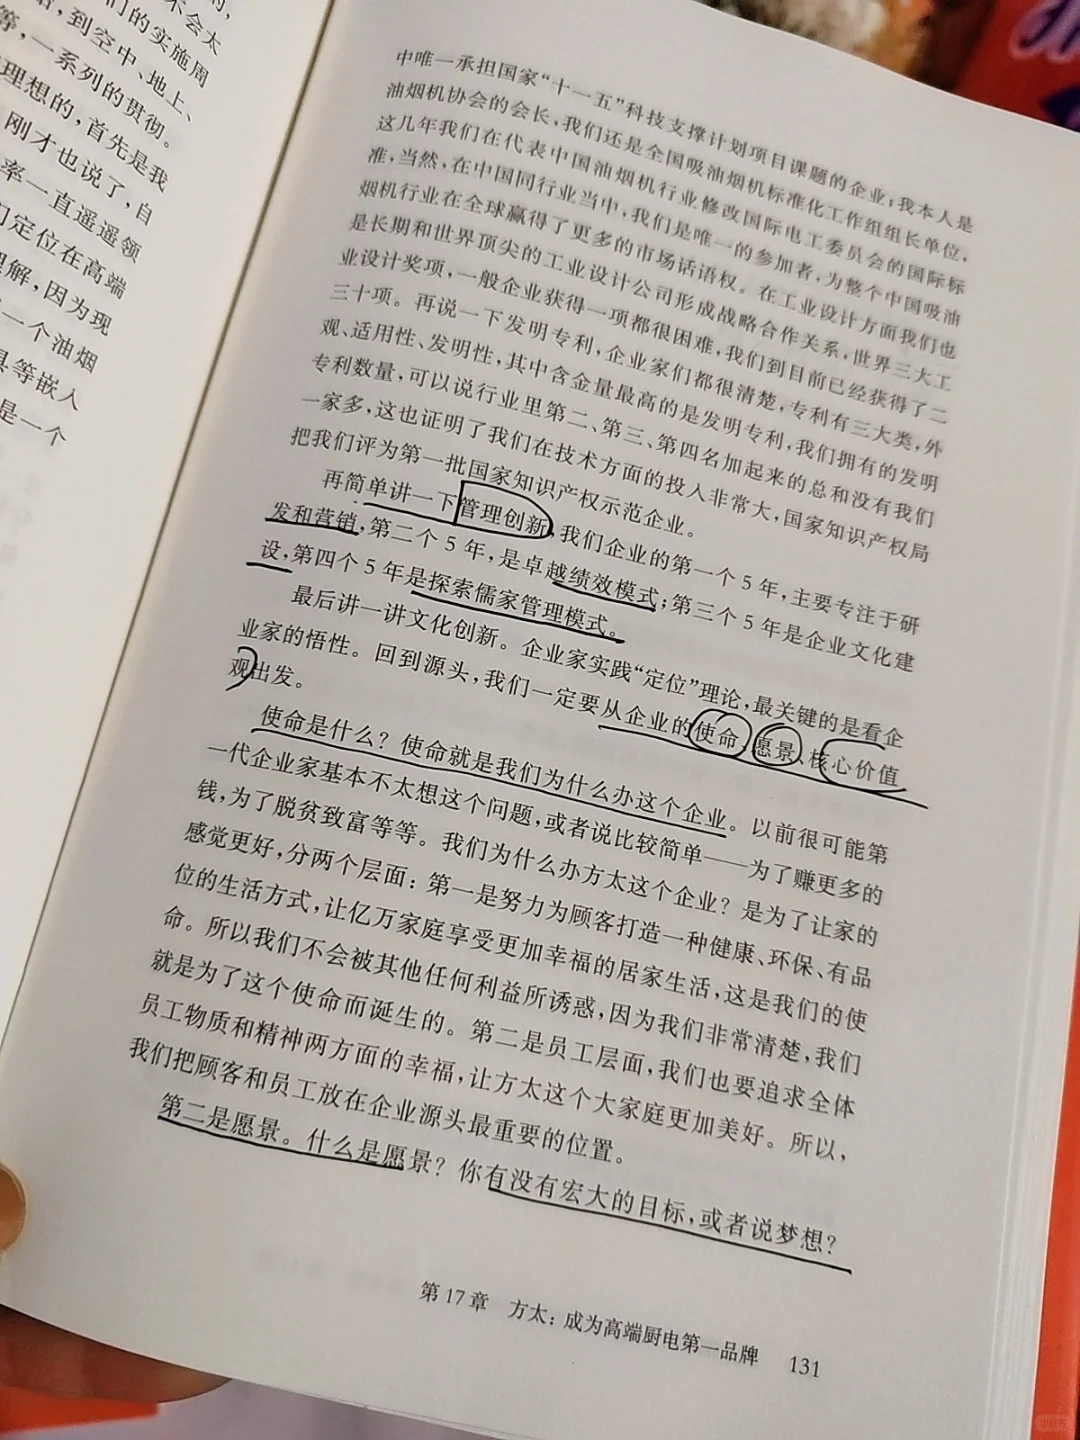 的,
不会太
们的实施周
到空中、地上、
等,一系列的贯彻。
理想的,首先是我
刚才也说了,自
率一直遥遥领
们定位在高端
理解,因为现
一个油烟
具等嵌入
是一个
中唯一承担国家“十一五”科技支撑计划项目课题的企业;我本人是
油烟机协会的会长,我们还是全国吸油烟机标准化工作组组长单位,
这几年我们在代表中国油烟机行业修改国际电工委员会的国际标
准,当然,在中国同行业当中,我们是唯一的参加者,为整个中国吸油
烟机行业在全球赢得了更多的市场话语权。在工业设计方面我们也
是长期和世界顶尖的工业设计公司形成战略合作关系,世界三大工
业设计奖项,一般企业获得一项都很困难,我们到目前已经获得了二
三十项。再说一下发明专利,企业家们都很清楚,专利有三大类,外
观、适用性、发明性,其中含金量最高的是发明专利,我们拥有的发明
专利数量,可以说行业里第二、第三、第四名加起来的总和没有我们
一家多,这也证明了我们在技术方面的投入非常大,国家知识产权局
把我们评为第一批国家知识产权示范企业。
再简单讲一下管理创新,我们企业的第一个5年,主要专注于研
发和营销,第二个5年,是卓越绩效模式;第三个5年是企业文化建
设,第四个5年是探索儒家管理模式。
最后讲一讲文化创新。企业家实践“定位”理论,最关键的是看企
业家的悟性。回到源头,我们一定要从企业的使命、愿景、核心价值
观出发。
使命是什么?使命就是我们为什么办这个企业。以前很可能第
一代企业家基本不太想这个问题,或者说比较简单——为了赚更多的
钱,为了脱贫致富等等。我们为什么办方太这个企业?是为了让家的
感觉更好,分两个层面:第一是努力为顾客打造一种健康、环保、有品
位的生活方式,让亿万家庭享受更加幸福的居家生活,这是我们的使
命。所以我们不会被其他任何利益所诱惑,因为我们非常清楚,我们
就是为了这个使命而诞生的。第二是员工层面,我们也要追求全体
员工物质和精神两方面的幸福,让方太这个大家庭更加美好。所以,
我们把顾客和员工放在企业源头最重要的位置。
第二是愿景。什么是愿景?你有没有宏大的目标,或者说梦想?
第17章 方太:成为高端厨电第一品牌 131